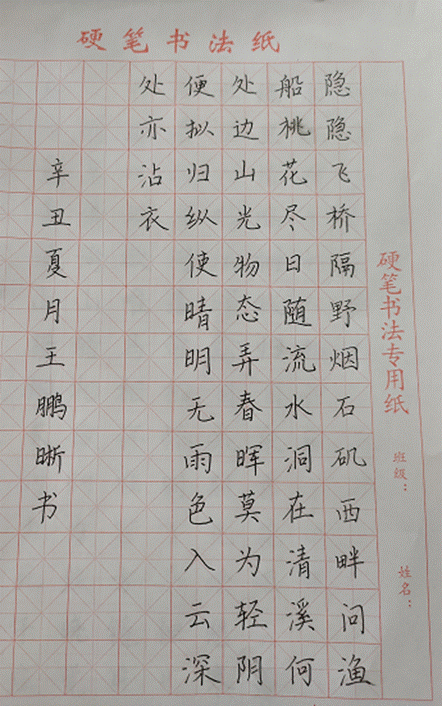 硬笔书法纸
硬笔书法专用纸
班级：
姓名：
隐隐飞桥隔野烟石矶西畔问渔
船桃花尽日随流水洞在清溪何
处边山光物态弄春晖莫为轻阴
便拟归纵使晴明无雨色入云深
处亦沾衣
辛丑夏月王鹏晰书